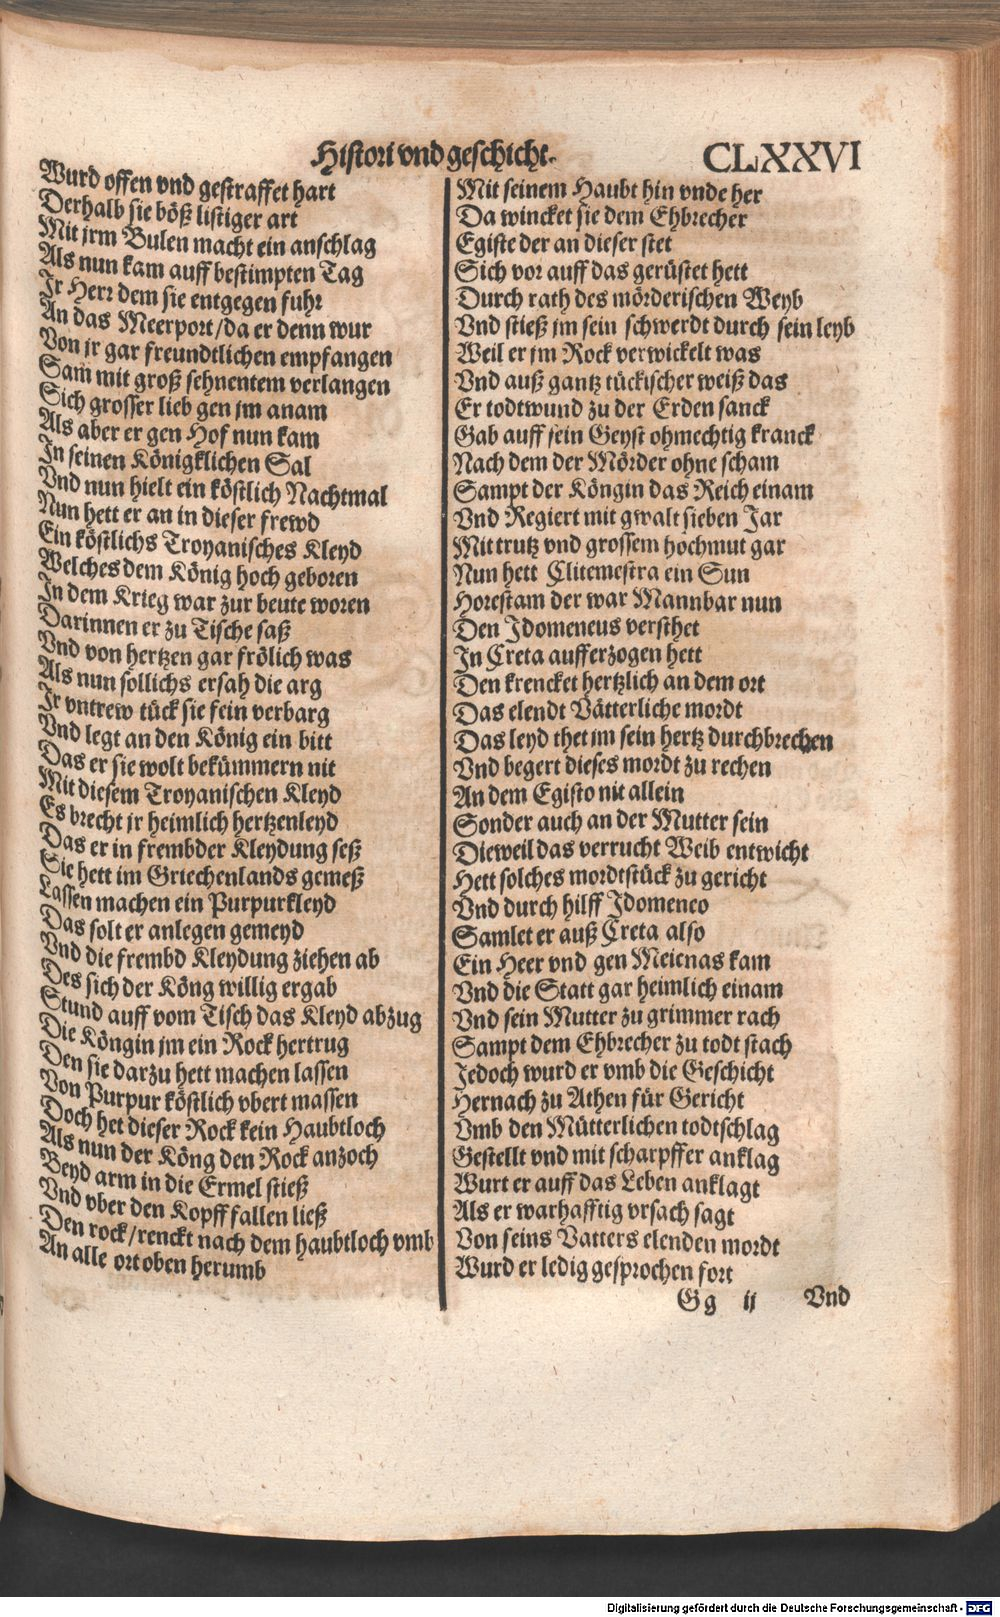 Histori vnd geschicht. CLXXVI
Wurd offen vnd gestraffet hart
Derhalb sie böß listiger art
Mit jrm Bulen macht ein anschlag
Als nun kam auff bestimpten Tag
Jr Herr dem sie entgegen fuhr
An das Meerport/da er denn wur
Von jr gar freundtlichen empfangen
Sam mit groß sehnentem verlangen
Sich grosser lieb gen jm anam
Als aber er gen Hof nun kam
Jn seinen Königklichen Sal
Vnd nun hielt ein köstlich Nachtmal
Nun hett er an in dieser frewd
Ein köstlichs Troyanisches Kleyd
Welches dem König hoch geboren
Jn dem Krieg war zur beute woren
Darinnen er zu Tische saß
Vnd von hertzen gar frölich was
Als nun sollichs ersah die arg
Jr vntrew tück sie fein verbarg
Vnd legt an den König ein bitt
Das er sie wolt bekümmern nit
Mit diesem Troyanischen Kleyd
Es brecht jr heimlich hertzenleyd
Das er in frembder Kleydung seß
Sie hett im Griechenlands gemeß
Lassen machen ein Purpurkleyd
Das solt er anlegen gemeyd
Vnd die frembd Kleydung ziehen ab
Des sich der Köng willig ergab
Stund auff vom Tisch das Kleyd abzug
Die Köngin jm ein Rock hertrug
Den sie darzu hett machen lassen
Von Purpur köstlich vbert massen
Doch het dieser Rock kein Haubtloch
Als nun der Köng den Rock anzoch
Beyd arm in die Ermel stieß
Vnd vber den Kopff fallen ließ
Den rock/renckt nach dem haubtloch vmb
An alle ort oben herumb
Mit seinem Haubt hin vnde her
Da wincket sie dem Ehbrecher
Egiste der an dieser stet
Sich vor auff das gerüstet hett
Durch rath des mörderischen Weyb
Vnd stieß jm sein schwerdt durch sein leyb
Weil er jm Rock verwickelt was
Vnd auß gantz tückischer weiß das
Er todtwund zu der Erden sanck
Gab auff sein Geyst ohmechtig kranck
Nach dem der Mörder ohne scham
Sampt der Köngin das Reich einam
Vnd Regiert mit gwalt sieben Jar
Mit trutz vnd grossem hochmut gar
Nun hett Clitemestra ein Sun
Horestam der war Mannbar nun
Den Jdomeneus versthet
Jn Creta aufferzogen hett
Den krencket hertzlich an dem ort
Das elendt Vätterliche mordt
Das leyd thet im sein hertz durchbrechen
Vnd begert dieses mordt zu rechen
An dem Egisto nit allein
Sonder auch an der Mutter sein
Dieweil das verrucht Weib entwicht
Hett solches mordtstück zu gericht
Vnd durch hilff Jdomeneo
Samlet er auß Creta also
Ein Heer vnd gen Meicnas kam
Vnd die Statt gar heimlich einam
Vnd sein Mutter zu grimmer rach
Sampt dem Ehbrecher zu todt stach
Jedoch wurd er vmb die Geschicht
Hernach zu Athen für Gericht
Vmb den Mütterlichen todtschlag
Gestellt vnd mit scharpffer anklag
Wurt er auff das Leben anklagt
Als er warhafftig vrsach sagt
Von seins Vatters elenden mordt
Wurd er ledig gesprochen fort
Gg ij Vnd
Digitalisierung gefördert durch die Deutsche Forschungsgemeinschaft - DFG